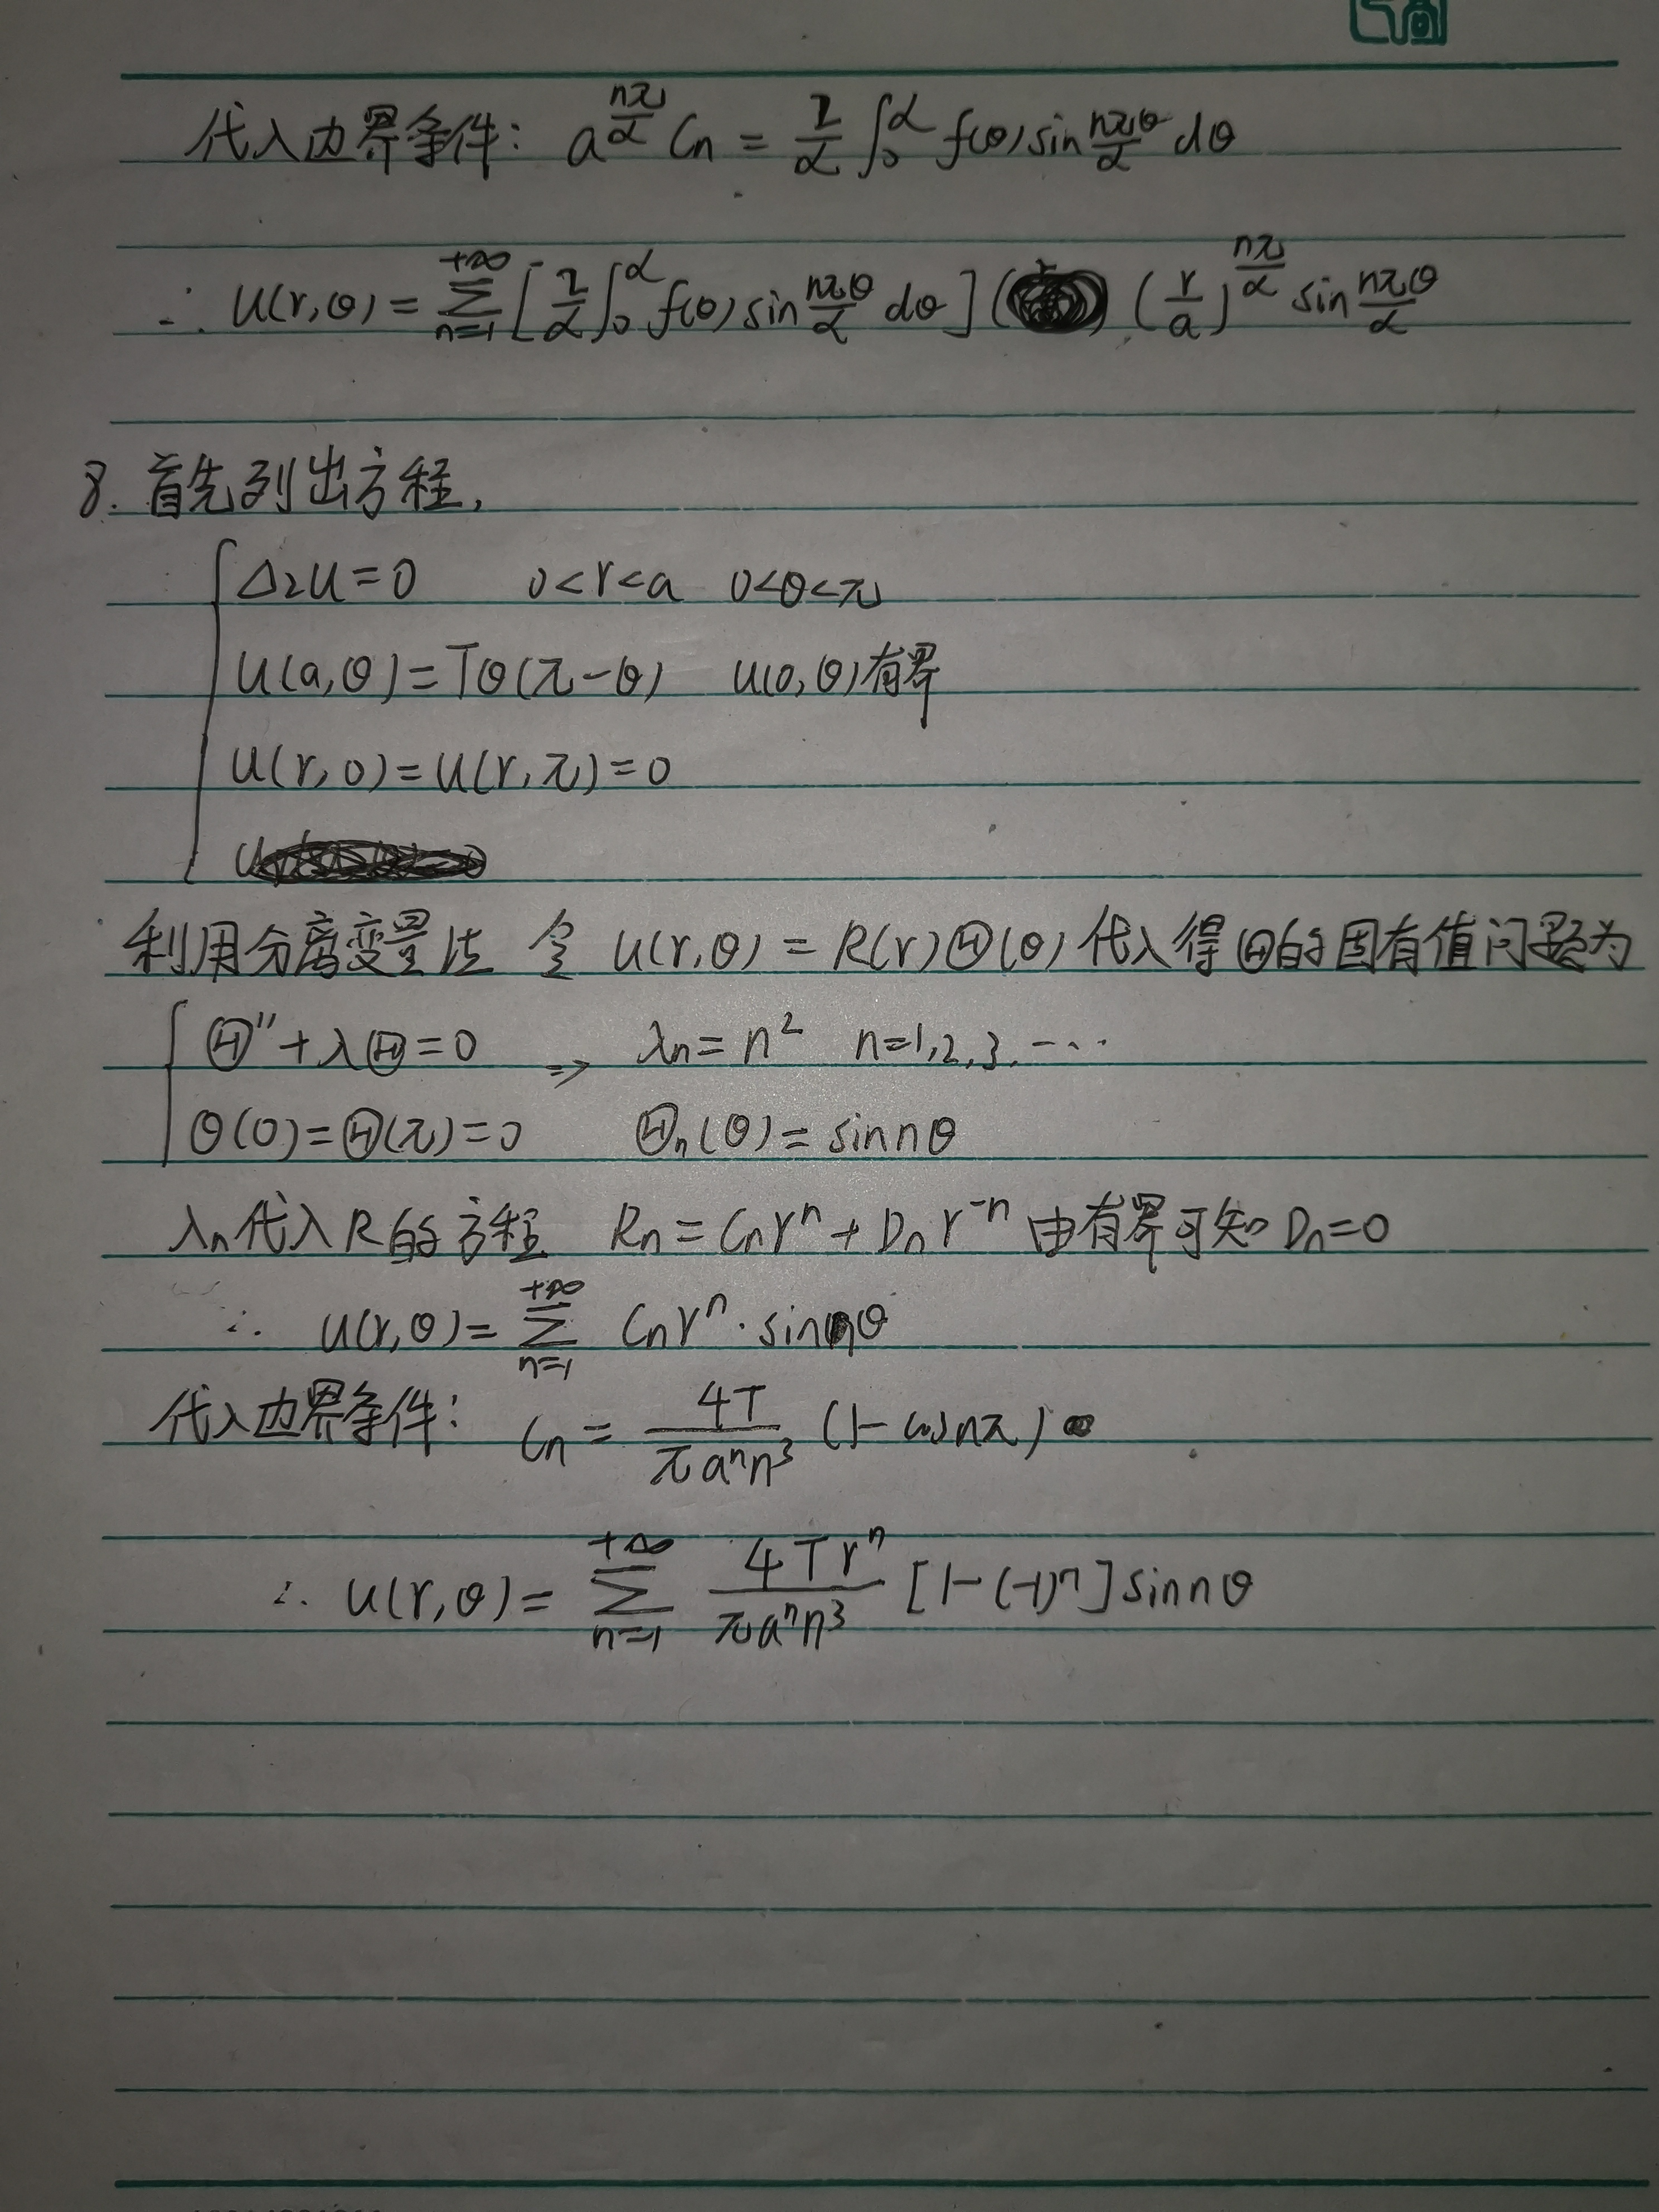 代入边界条件: a^{\frac{nπ}{α}} Cn = \frac{2}{α} ∫_0^α f(θ) sin\frac{nπθ}{α} dθ
∴ u(r,θ) = \sum_{n=1}^{+∞} [\frac{2}{α} ∫_0^α f(θ) sin\frac{nπθ}{α} dθ] (\frac{r}{a})^{\frac{nπ}{α}} sin\frac{nπθ}{α}
8. 首先列出方程,
Δ₂u = 0 0<r<a 0<θ<π
u(a,θ) = Tθ(π-θ) u(0,θ)有界
u(r,0) = u(r,π) = 0
利用分离变量法 令 u(r,θ) = R(r)Θ(θ) 代入得Θ的固有值问题为
Θ''+λΘ=0 ⇒ λn = n² n=1,2,3,…
θ(0)=Θ(π)=0 Θn(θ) = sin nθ
λn代入R的方程 Rn = Cn r^n + Dn r^{-n} 由有界可知 Dn=0
∴ u(r,θ) = \sum_{n=1}^{+∞} Cn r^n · sin nθ
代入边界条件: Cn = \frac{4T}{πa^n n^3} (1-cosnπ)
∴ u(r,θ) = \sum_{n=1}^{+∞} \frac{4Tr^n}{πa^n n^3} [1-(-1)^n] sin nθ